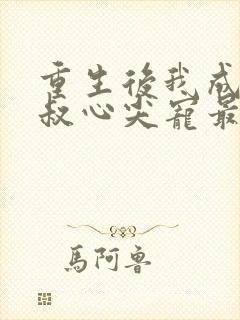 重生後我成
叔心尖寵最
馬阿魯